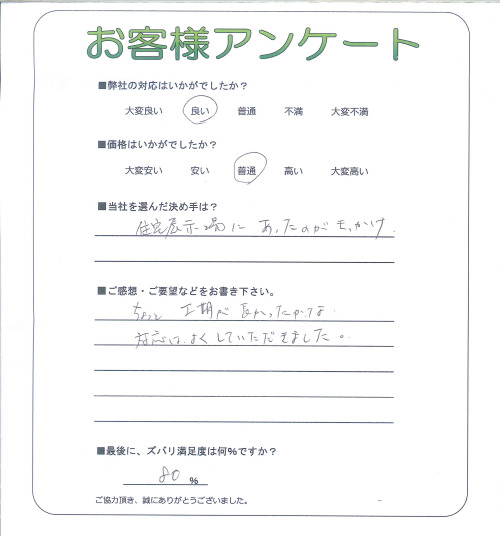 お客様アンケート
■弊社の対応はいかがでしたか？
大変良い 良い 普通 不満 大変不満
■価格はいかがでしたか？
大変安い 安い 普通 高い 大変高い
■当社を選んだ決め手は？
住宅展示場に あったのがきっかけ.
■ご感想・ご要望などをお書き下さい。
ちょっと 工期が 長かったかな.
対応は、よくしていただきました。
■最後に、ズバリ満足度は何%ですか？
80 %
ご協力頂き、誠にありがとうございました。